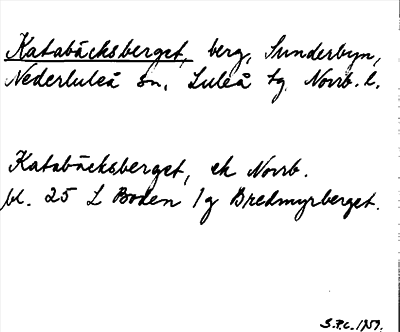 Katabäcksberget, berg, Sunderbyn,
Nederluleå sn, Luleå tg Norrb. l.
Katabäcksberget, ek Norrb.
bl. 25 L Boden 1g Bredmyrberget.
S.P.C. 1959.